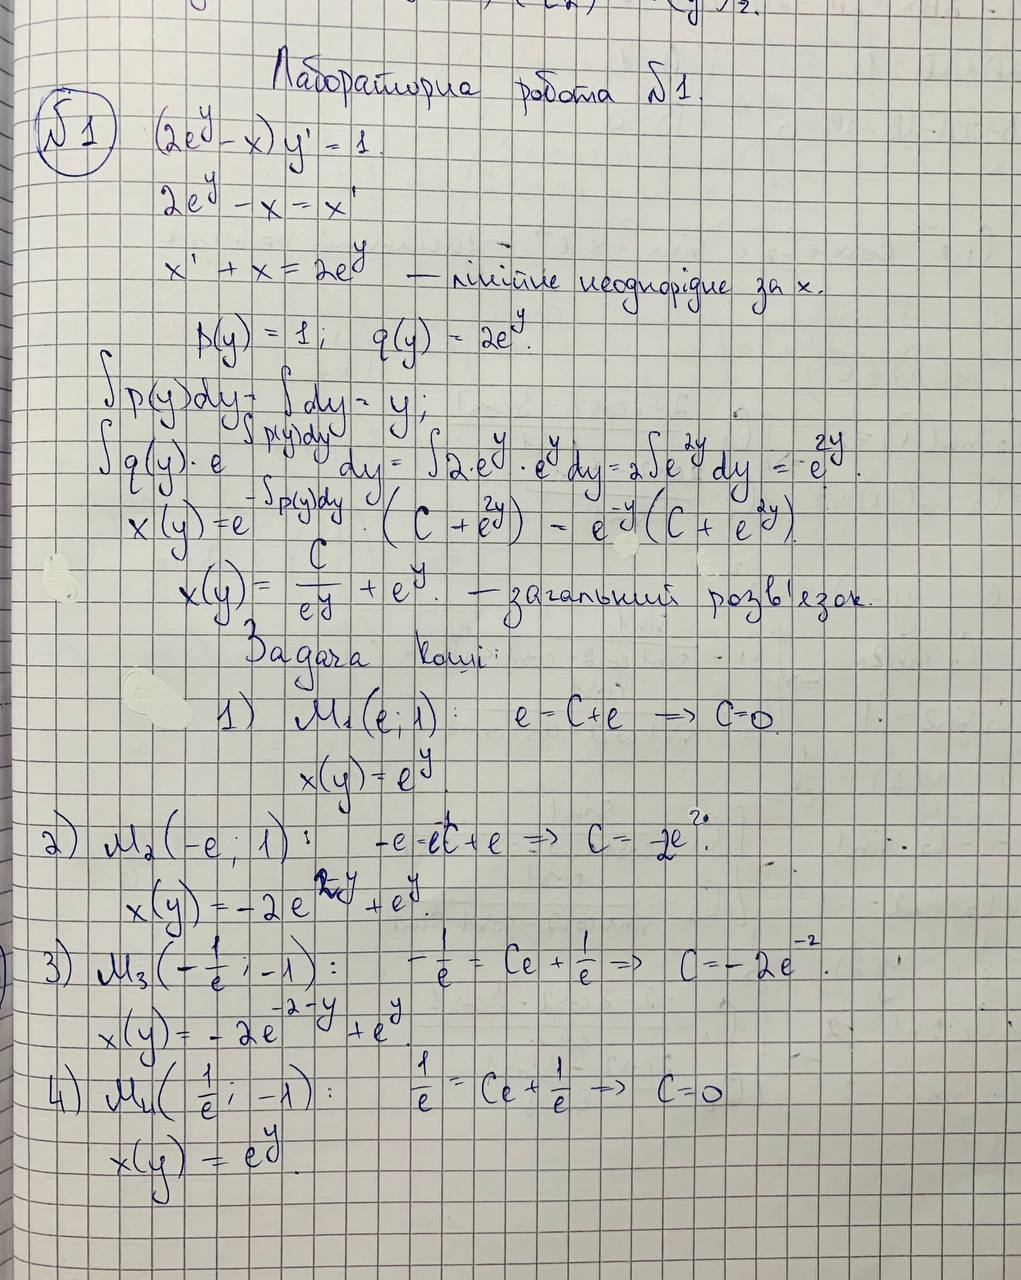 Лабораторна робота №1.
№1 (2e^y - x) y' = 1.
2e^y - x = x'
x' + x = 2e^y — лінійне неоднорідне за x.
p(y) = 1; q(y) = 2e^y.
∫p(y)dy = ∫dy = y;
∫q(y)·e^{∫p(y)dy} dy = ∫2·e^y·e^y dy = 2∫e^{2y} dy = e^{2y}.
x(y) = e^{-∫p(y)dy} · (C + e^{2y}) = e^{-y}(C + e^{2y}).
x(y) = C/e^y + e^y. — загальний розв'язок.
Задача Коші:
1) M₁(e; 1): e = C + e => C = 0.
x(y) = e^y.
2) M₂(-e; 1): -e = e^{-1}C + e => C = -2e^2.
x(y) = -2e^{2-y} + e^y.
3) M₃(-1/e; -1): -1/e = Ce + 1/e => C = -2e^{-2}.
x(y) = -2e^{-2-y} + e^y.
4) M₄(1/e; -1): 1/e = Ce + 1/e => C = 0
x(y) = e^y.